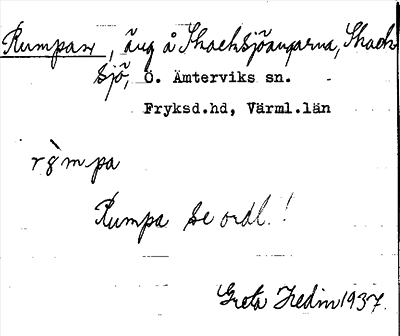 Rumpan, äng å Skacksjöängarna, Skack-
sjö, Ö. Ämterviks sn.
Fryksd.hd, Värml.län
Rumpa se ordl.!
Greta Hedin 1937.